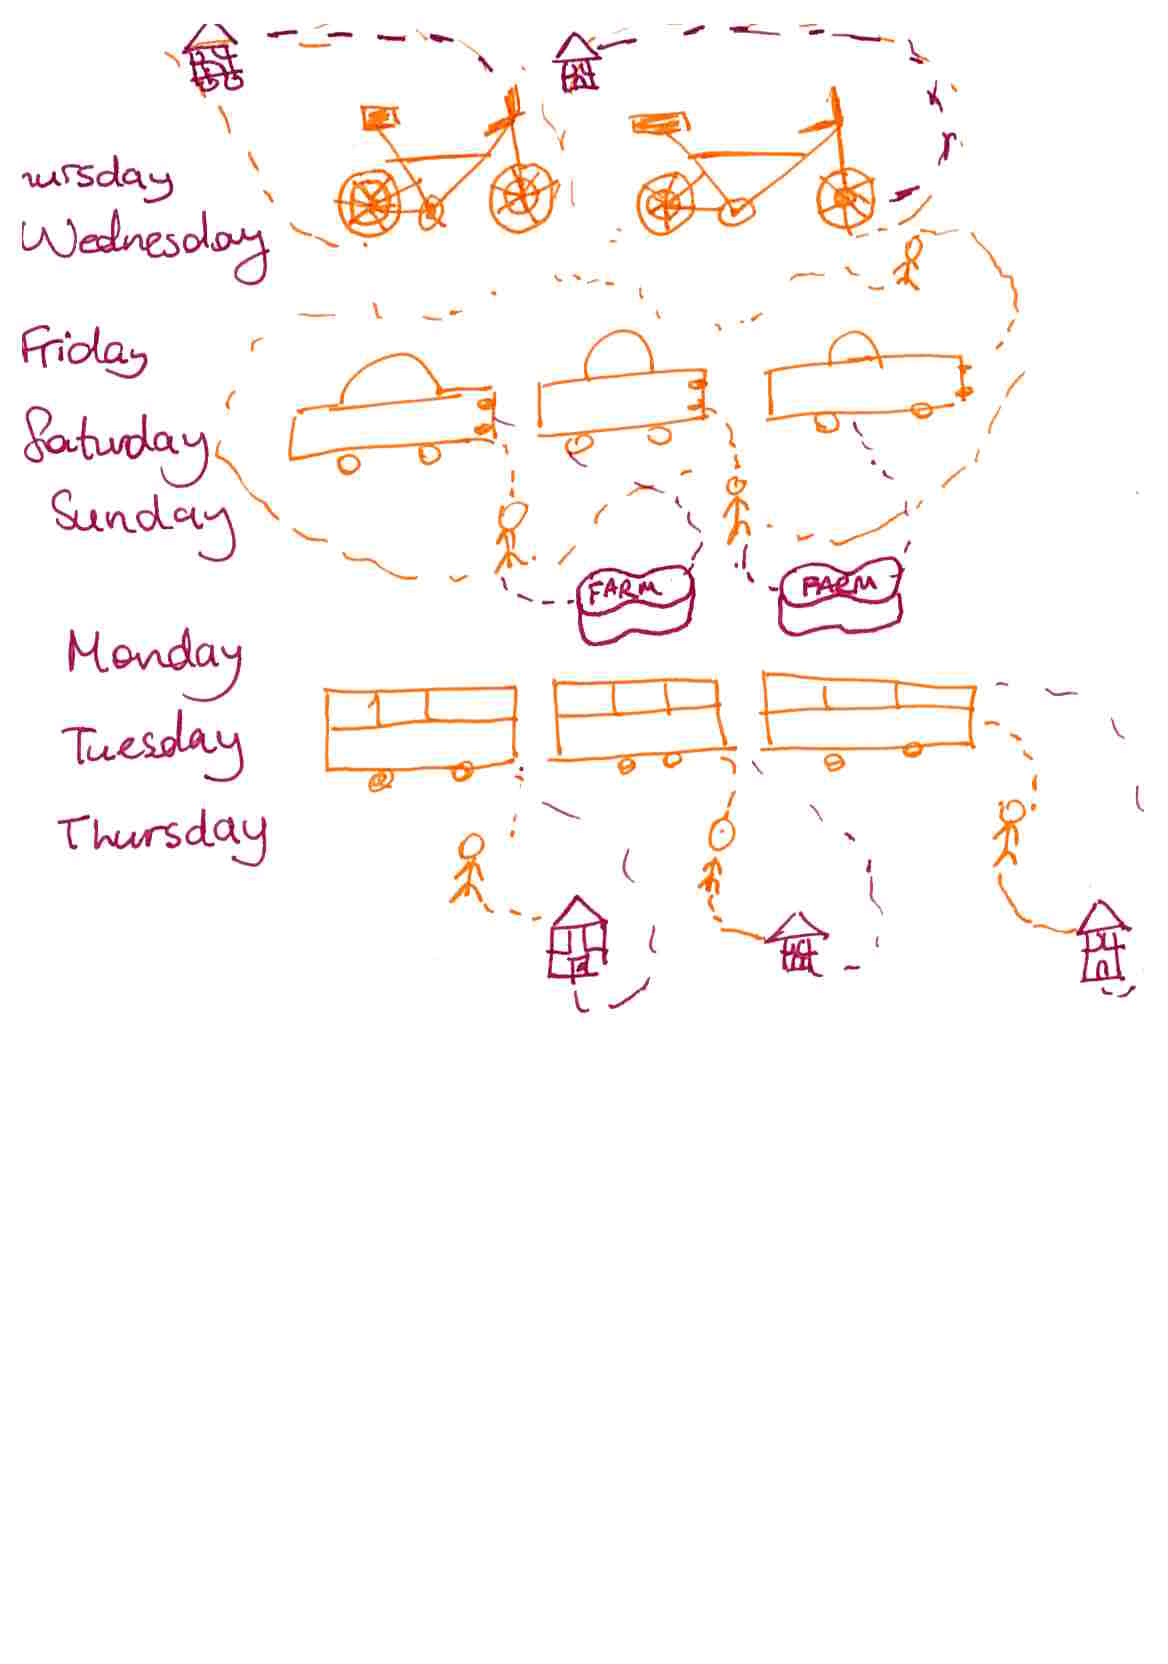 ursday
Wednesday
Friday
Saturday
Sunday
FARM FARM
Monday
Tuesday
Thursday